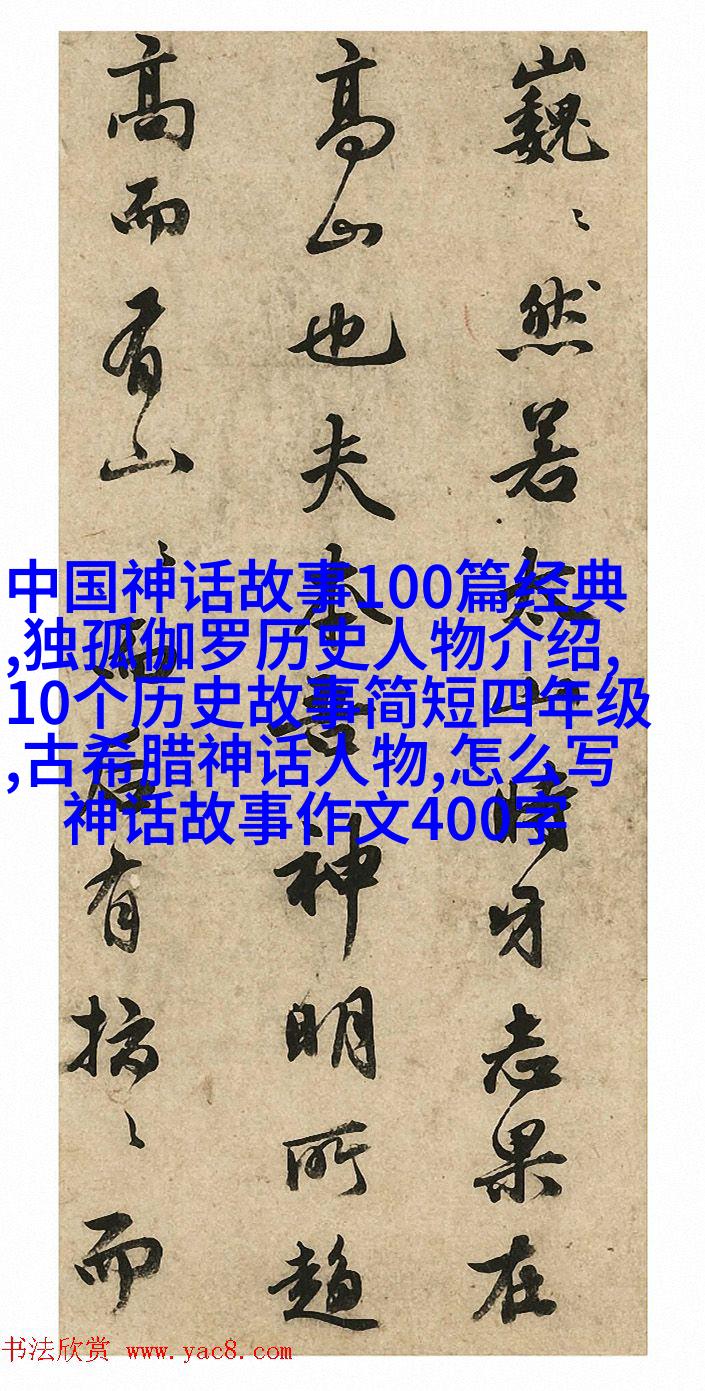 巍〻然若太山時牙志果在
高山也夫本吾神明所趣
高而有山〻而后有〻而
中国神话故事100篇经典
,独孤伽罗历史人物介绍,
10个历史故事简短四年级
,古希腊神话人物,怎么写
神话故事作文400字
书法欣赏 www.yac8.com